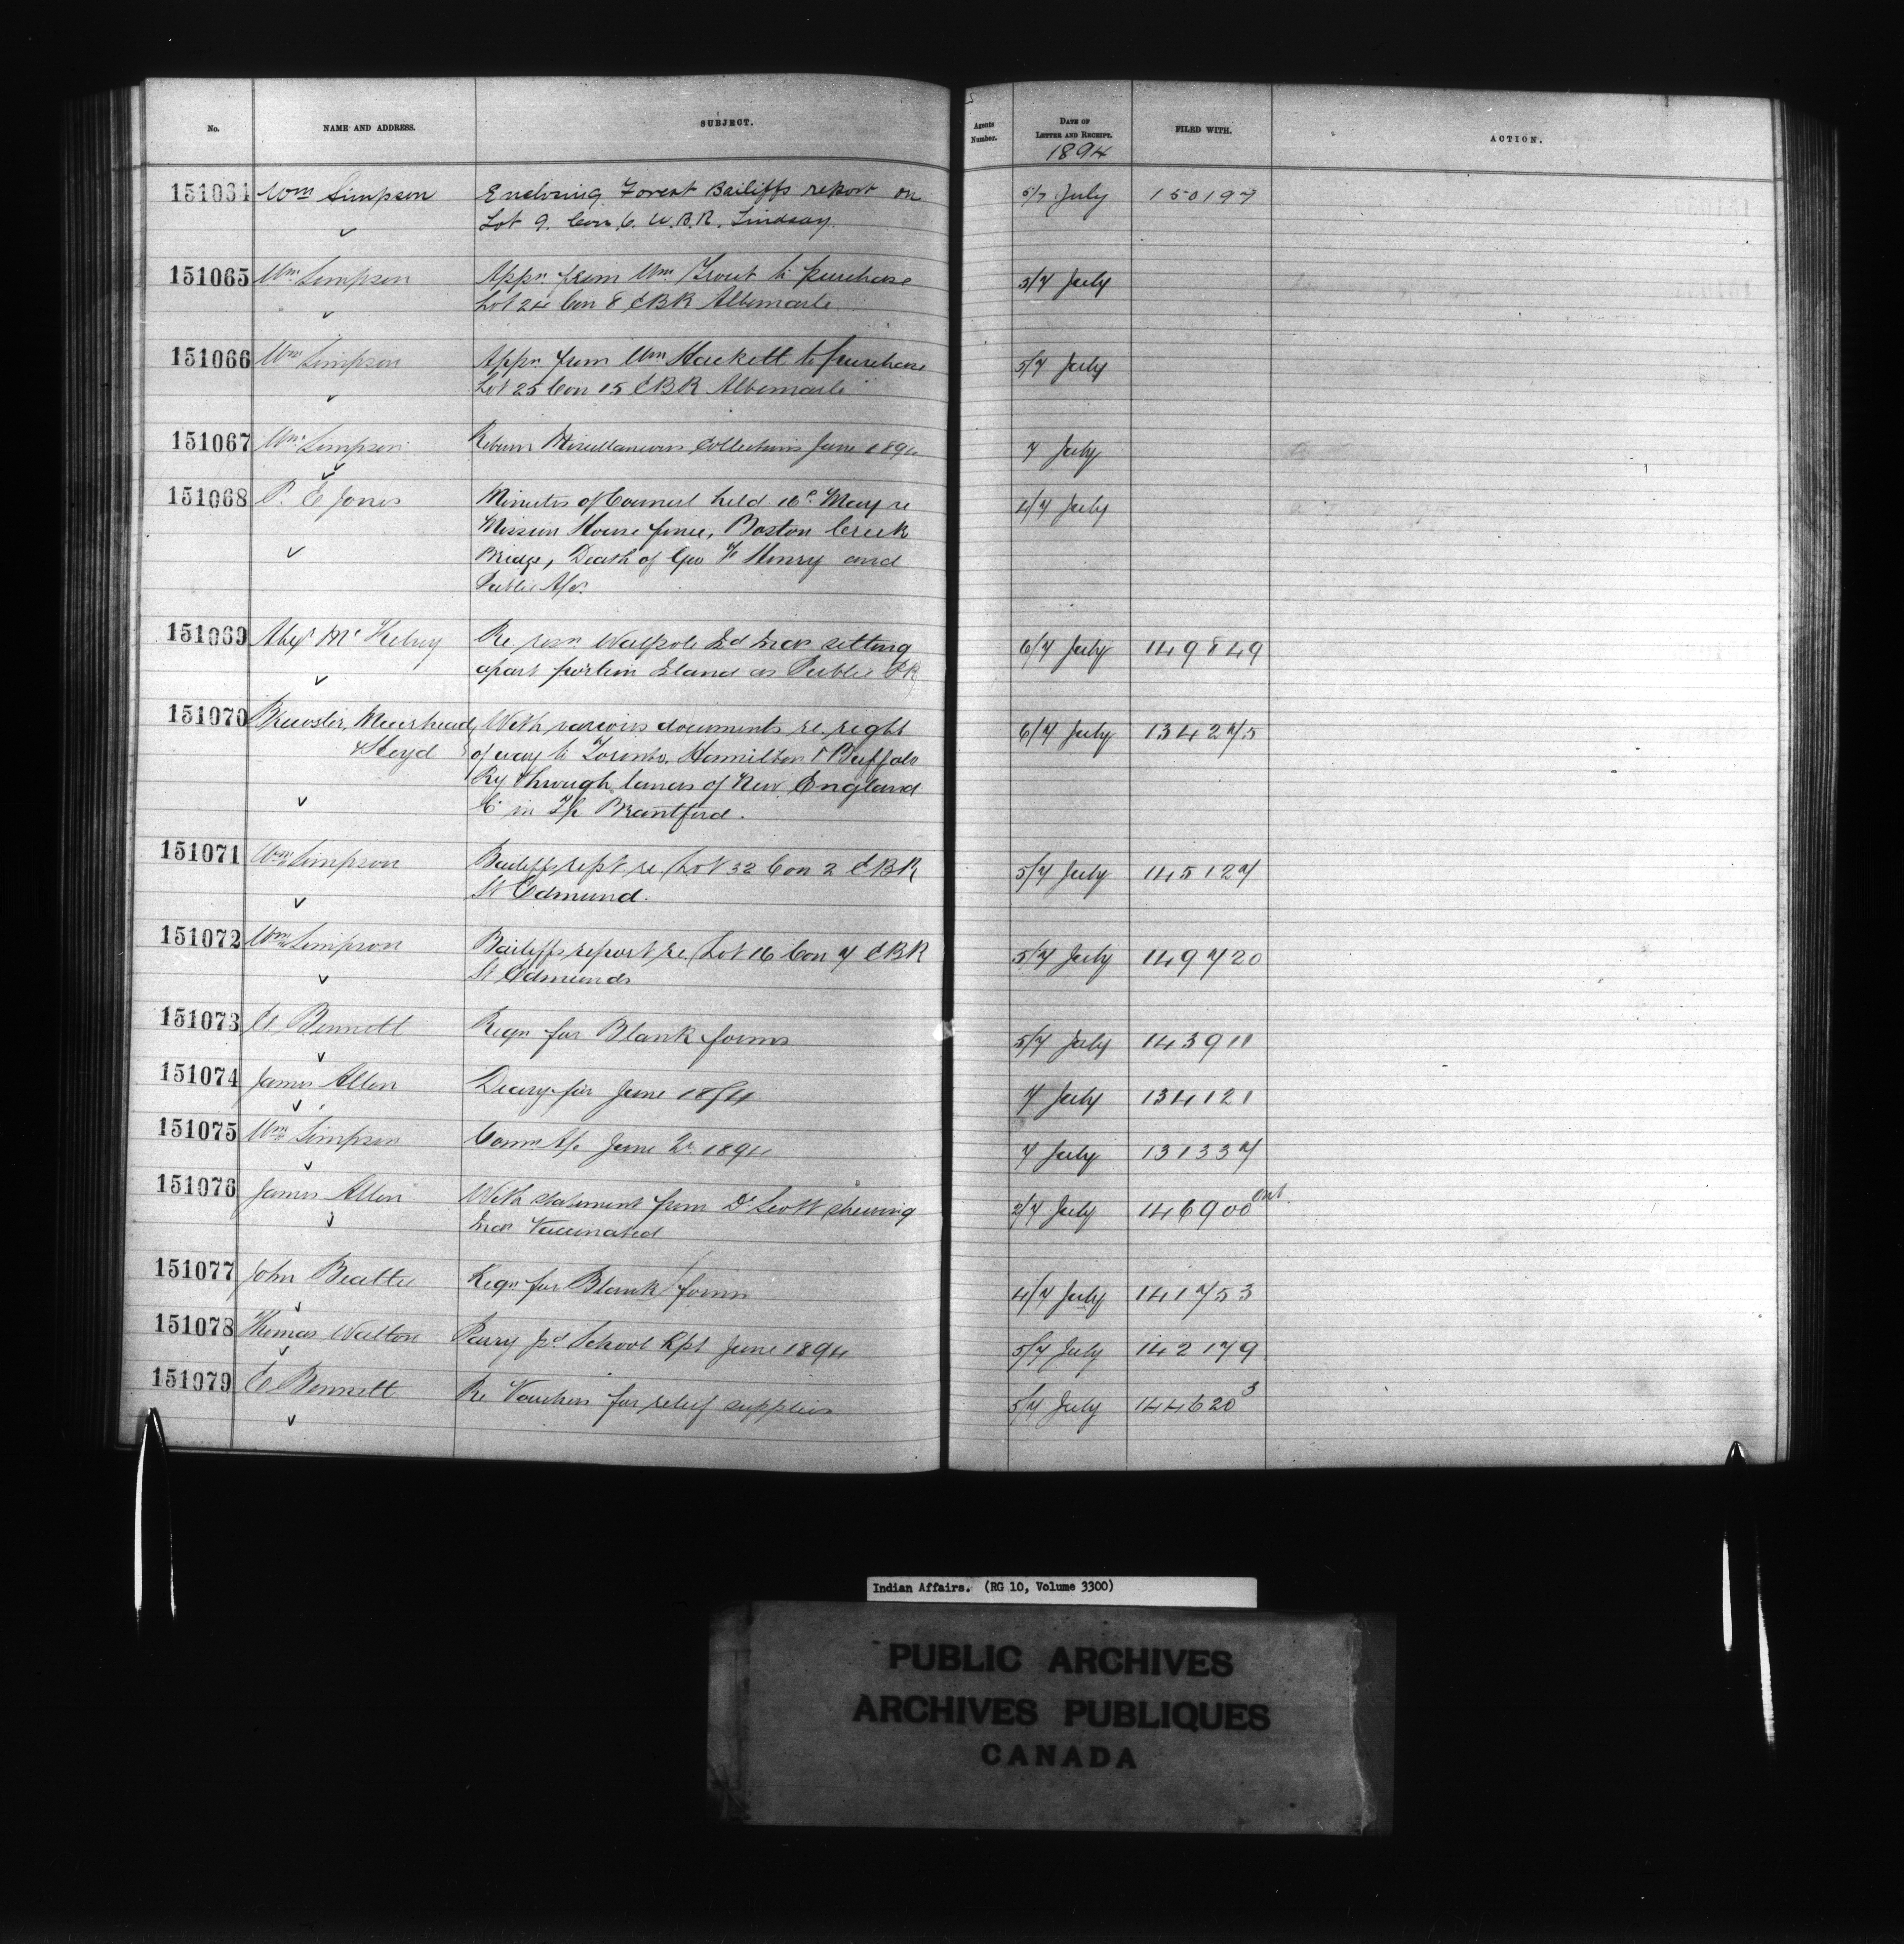 No. NAME AND ADDRESS. SUBJECT. Agents Number. DATE OF LETTER AND RECEIPT. FILED WITH. ACTION.
1894
151064 Wm Simpson Enclosing Forest Bailiffs report on 5/7 July 150197
Lot 9. Con. 6. W.B.R. Lindsay.
151065 Wm Simpson Appn from Wm Trout to purchase 5/7 July
Lot 24 Con 8 EBR Albemarle
151066 Wm Simpson Appn from Wm Hackett to purchase 5/7 July
Lot 25 Con 15 EBR Albemarle
151067 Wm Simpson Return Miscellaneous Collections June 1894 7 July
151068 P. E Jones Minutes of Council held 16th May re 4/7 July
Mission House fence, Boston Creek
Bridge, Death of Geo H Henry and
Public
151069 Alex Mc Kelvey Re resn Walpole Id Inds setting 6/7 July 149849
apart portion Island as Public Pk
151070 Brewster, Muirhead With various documents re right 6/7 July 134275
& Heyd of way to Toronto, Hamilton & Buffalo
Ry through lands of New England
Co in Tp Brantford.
151071 Wm Simpson Bailiffs rept re Lot 32 Con 2 EBR 5/7 July 145127
St Edmund.
151072 Wm Simpson Bailiffs report re Lot 16 Con 7 EBR 5/7 July 149720
St Edmunds
151073 E. Bennett Reqn for Blank forms 5/7 July 143911
151074 James Allen Diary for June 1894 7 July 134121
151075 Wm Simpson Comn A/c June Qr 1894 7 July 131337
151076 James Allen With statement from Dr Scott shewing 2/7 July 146900 Ont
Inds Vaccinated
151077 John Beattie Reqn for Blank forms 4/7 July 141753
151078 Thomas Walton Parry Id School Rpt June 1894 5/7 July 142179
151079 E Bennett Re Vouchers for relief supplies 5/7 July 144620 3
Indian Affairs. (RG 10, Volume 3300)
PUBLIC ARCHIVES
ARCHIVES PUBLIQUES
CANADA